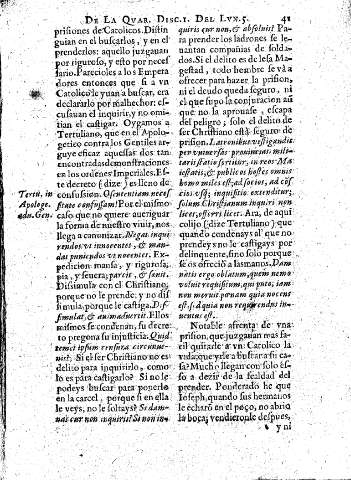 DE LA QVAR. DISC. I. DEL LVN. 5. 41
prisiones de Catolicos. Distin
guian en el buscarlos, y en el
prenderlos: aquello juzgaron
por riguroso, y esto por neces
sario. Parecioles a los Empera
dores entonces que si a vn
Catolico le yuan a buscar, era
declararlo por malhechor: es-
cusauan el inquirir, y no omi-
tian el castigar. Oygamos a
Tertuliano, que en el Apolo-
getico contra los Gentiles ar-
guye eficaz aquessas dos tan
encontradas demonstraciones
en los ordenes Imperiales. Es
te decreto (dize) es lleno de
confusion. O sententiam neces
sitate confusam! Por el mismo
caso que no quiere aueriguar
la forma de nuestro viuir, nos
llega a canonizar. Negat inqui
rendos vt innocentes, & man-
dat puniendos vt nocentes. Ex-
pedicion mansa, y rigurosa,
pia, y seuera; parcit, & sæuit.
Dissimula con el Christiano,
porque no le prende; y no dis
simula, porque le castiga. Dis
simulat, & animaduertit. Ellos
mismos se condenan, su decre
to pregona su injusticia. Quid
temet ipsum censura circumue-
nit? Si el ser Christiano no es
delito para inquirirlo, como
lo es para castigarlo? Si no le
podeys buscar para ponerlo
en la carcel, porque si en ella
le veys, no le soltays? Si dam-
nas cur non inquiris? Si non in-
Tertu. in
Apologe.
adu. Gen.
quiris cur non, & absoluis? Pa
ra prender los ladrones se le-
uantan compañias de solda-
dos. Si el delito es de lesa Ma-
gestad, todo hombre se vâ a
ofrecer para hazer la prision,
ni el deudo queda seguro, ni
el que supo la conjuracion aũ
que no la aprouase, escapa
del peligro; solo el delito de
ser Christiano està seguro de
prision. Latronibus vestigandis
per vniuersas prouincias mili-
taris statio sortitur, in reos Ma-
iestatis, & publicos hostes omnis
homo miles est; ad socios, ad cõs
cios vsq; inquisitio extenditur;
solum Christianum inquiri non
licet, offerri licet. Ara, de aqui
colijo (dize Tertuliano) que
quando condenays al que no
prendeys no le castigays por
delinquente, sino solo porque
se os ofreciò a las manos. Dam
natis ergo oblatum, quem nemo
voluit requisitum, qui puto, iam
non meruit pœnam quia nocens
est, sed quia non requirendus in-
uentus est.
Notable afrenta de vna
prision, que juzgaran mas fa-
cil quitarle a vn Catolico la
vida, que yrle a buscar a su ca-
sa? Mucho llegan con solo es-
so a dezir de la fealdad del
prender. Ponderado he que
Ioseph, quando sus hermanos
le echarõ en el poço, no abriò
la boca; vendieronle despues,
y ni